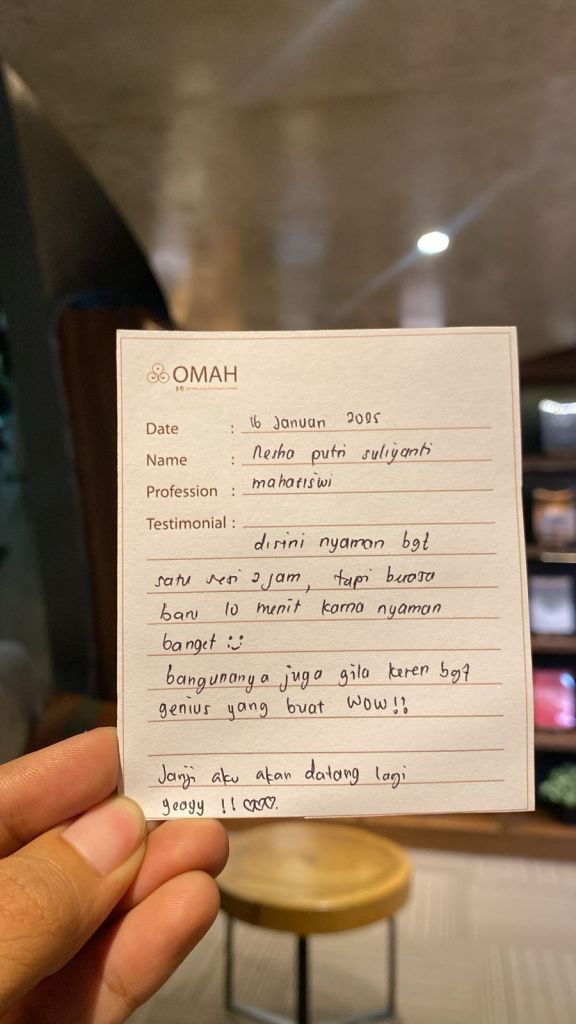 OMAH
Date : 16 Januari 2025
Name : Nesha putri suliyanti
Profession : mahasiswi
Testimonial :
disini nyaman bgt
satu sesi 2 jam, tapi berasa
baru 10 menit karna nyaman
banget :)
bangunanya juga gila keren bgt
genius yang buat WOW!!
Janji aku akan datang lagi
yeayy !! ♡♡♡.